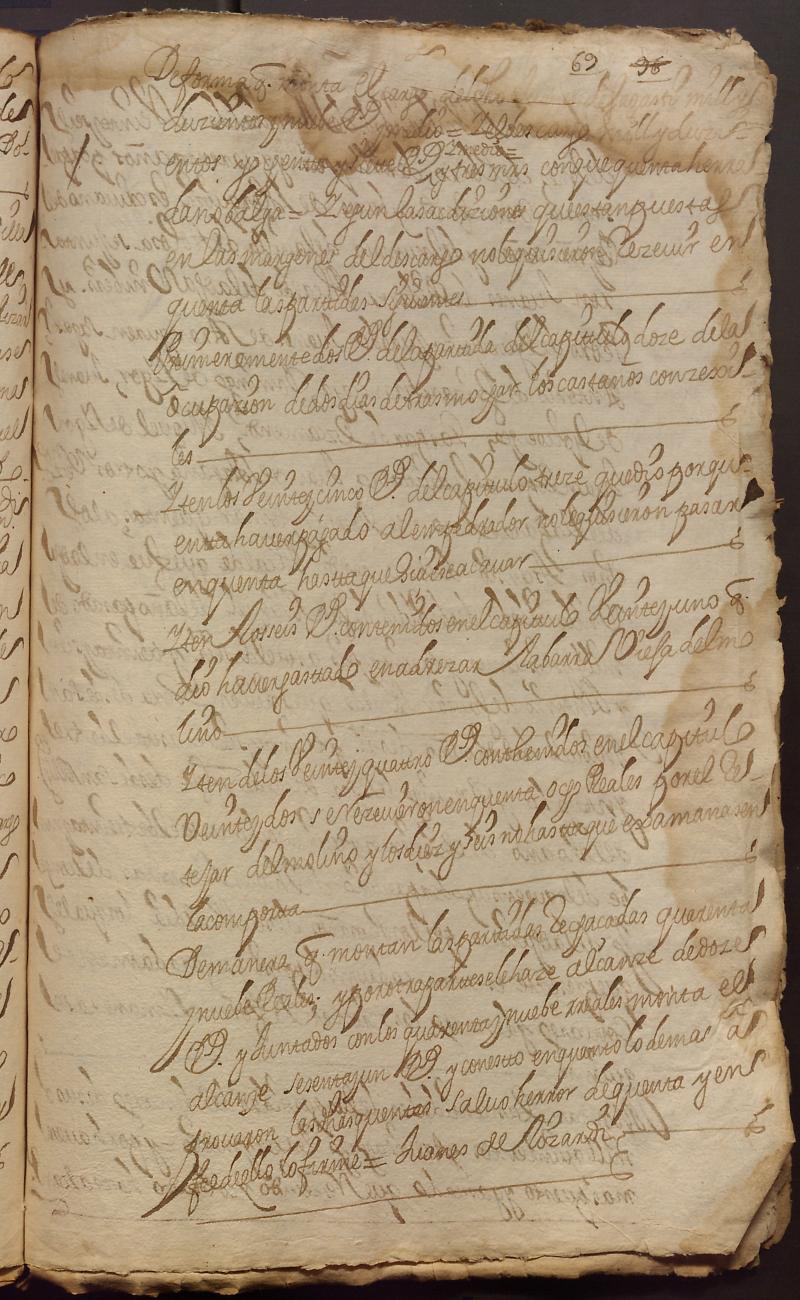 69 96
De forma q. monta el cargo
duzientos y nuebe Rs. y medio = Y el descargo mill y duzi-
entos y siete Rs. y medio = y tres mrs con que quenta herra
da no balga = Y segun las adiziones que estan puestas
en las margenes del descargo no le quisieron rezeuir en
quenta las partidas siguientes
Primeramente dos Rs. de la partida del capitulo doze de la
ocupazion de dos dias de trasmojar los castaños conzexi-
les
Yten los Veinte y cinco Rs. del capitulo treze que dijo por qu-
enta hauer pagado al empedrador no le quisieron pasar
en quenta hasta que acauar
Yten los seis Rs. contenidos en el capitulo Veinte y uno q.
dio hauer gastado en adrezar la barra Viesa del mo
lino
Yten de los Veinte y quattro Rs. conthenidos en el capitulo
Veinte y dos se rezeuieron en quenta ocho Reales por el re-
tejar del molino y los diez y seis no hasta que examanasen
la compotta
De manera q. montan las partidas resacadas quarenta
y nuebe Reales, y por otra parte se le haze alcanze de doze
Rs. y Juntados con los quarenta y nuebe rreales monta el
alcanze sesenta y un Rs. y con esto en quanto lo demas a
provaron las dhas quentas. saluo herror de quenta y en
fee de ello lo firme = Juanes de